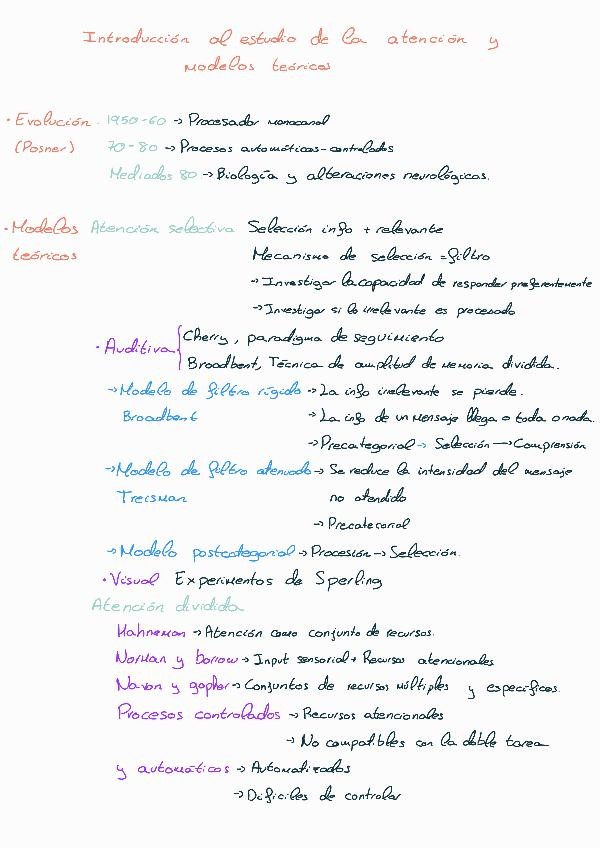 Introducción al estudio de la atención y
modelos teóricos
· Evolución. 1950-60 → Procesador monocanal
(Posner) 70-80 → Procesos automáticos-controlados
Mediados 80 → Biología y alteraciones neurológicas.
· Modelos Atención selectiva Selección info + relevante
teóricos Mecanismo de selección = filtro
→ Investigar la capacidad de responder preferentemente
→ Investigar si lo irrelevante es procesado
· Auditiva { Cherry, paradigma de seguimiento
Broadbent, Técnica de amplitud de memoria dividida.
→ Modelo de filtro rígido → La info irrelevante se pierde.
Broadbent → La info de un mensaje llega o toda o nada.
→ Precategorial → Selección → Comprensión
→ Modelo de filtro atenuado → Se reduce la intensidad del mensaje
Treisman no atendido
→ Precategorial
→ Modelo postcategorial → Procesión → Selección.
· Visual Experimentos de Sperling
Atención dividida
Kahneman → Atención como conjunto de recursos.
Norman y borrow → Input sensorial + Recursos atencionales
Navon y gopher → Conjuntos de recursos múltiples y específicos.
Procesos controlados → Recursos atencionales
→ No compatibles con la doble tarea
y automáticos → Automatizados
→ Difíciles de controlar